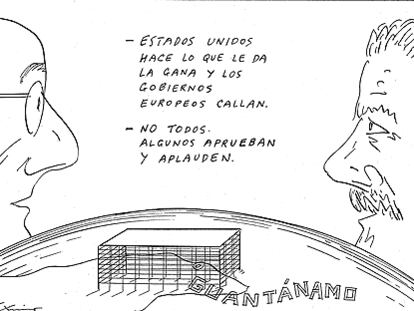 — ESTADOS UNIDOS
HACE LO QUE LE DA
LA GANA Y LOS
GOBIERNOS
EUROPEOS CALLAN.
— NO TODOS.
ALGUNOS APRUEBAN
Y APLAUDEN.
GUANTÁNAMO